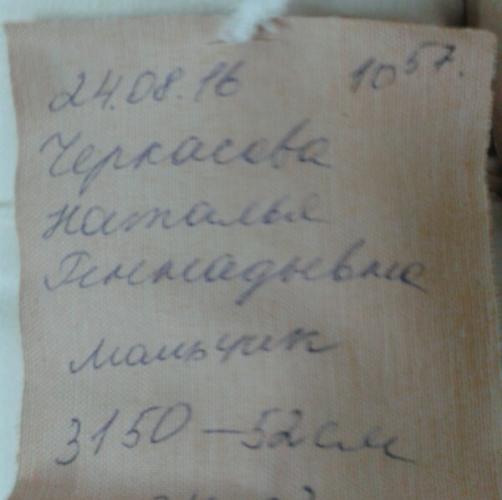 24.08.16 10⁵⁷.
Черкасова
Наталья
Геннадьевна
мальчик
3150 – 52 см